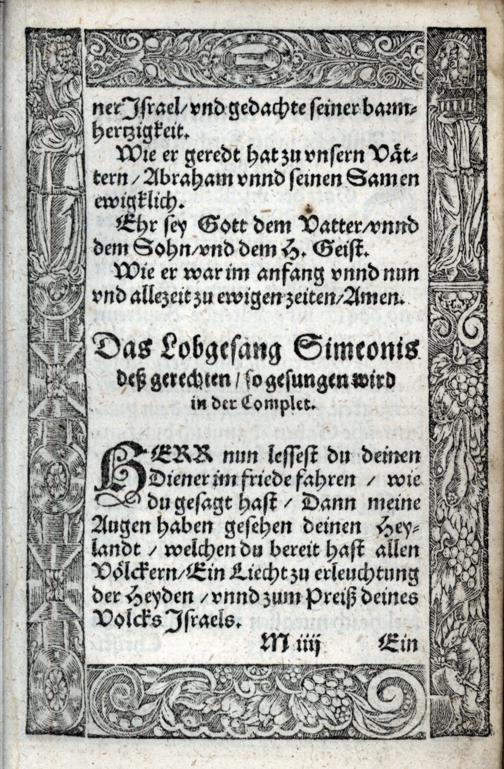 ner Israel/ vnd gedachte seiner barm-
hertzigkeit.
Wie er geredt hat zu vnsern Vät-
tern / Abraham vnnd seinen Samen
ewigklich.
Ehr sey Gott dem Vatter/vnnd
dem Sohn/vnd dem H. Geist.
Wie er war im anfang vnnd nun
vnd allezeit zu ewigen zeiten/Amen.
Das Lobgesang Simeonis
deß gerechten / so gesungen wird
in der Complet.
HERR nun lessest du deinen
Diener im friede fahren / wie
du gesagt hast / Dann meine
Augen haben gesehen deinen Hey-
landt / welchen du bereit hast allen
Völckern/Ein Liecht zu erleuchtung
der Heyden / vnnd zum Preiß deines
Volcks Israels.
M iiij Ein